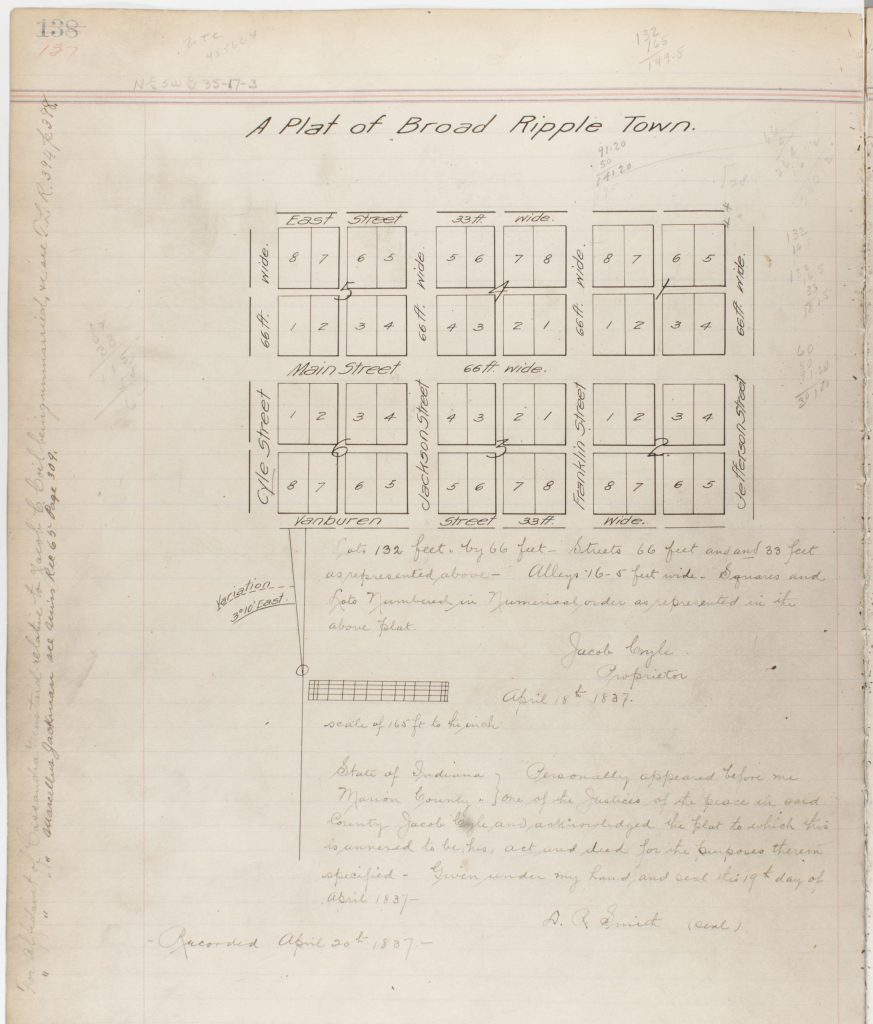 138
137
132
165
149.5
N½ SW¼ 35-17-3
A Plat of Broad Ripple Town.
91.20
50
141.20
East Street 33 ft. wide.
8 7 6 5 5 6 7 8 8 7 6 5
5 4 1
1 2 3 4 4 3 2 1 1 2 3 4
66 ft. wide.
66 ft. wide.
66 ft. wide.
66 ft. wide.
Main Street 66 ft. wide.
1 2 3 4 4 3 2 1 1 2 3 4
6 3 2
8 7 6 5 5 6 7 8 8 7 6 5
Cyle Street
Jackson Street
Franklin Street
Jefferson Street
Vanburen Street 33 ft. Wide.
Variation
3°10' East.
Lots 132 feet by 66 feet - Streets 66 feet and and 33 feet
as represented above - Alleys 16-5 feet wide - Squares and
Lots Numbered in Numerical order as represented in the
above plat.
Jacob Cyle
Proprietor
April 18th 1837.
scale of 165 ft to the inch
State of Indiana } Personally appeared before me
Marion County " } one of the Justices of the peace in said
County Jacob Cyle and acknowledged the plat to which this
is annexed to be his, act and deed for the purposes therein
specified - Given under my hand and seal this 19th day of
April 1837 -
D. R. Smith (seal)
- Recorded April 20th 1837. -
For Affidavit of Cassandra relative to Jacob C Coil being unmarried, see L. R. 394 p 398.
" " " Marcellus Jackman see Misc Rec 65 Page 309.